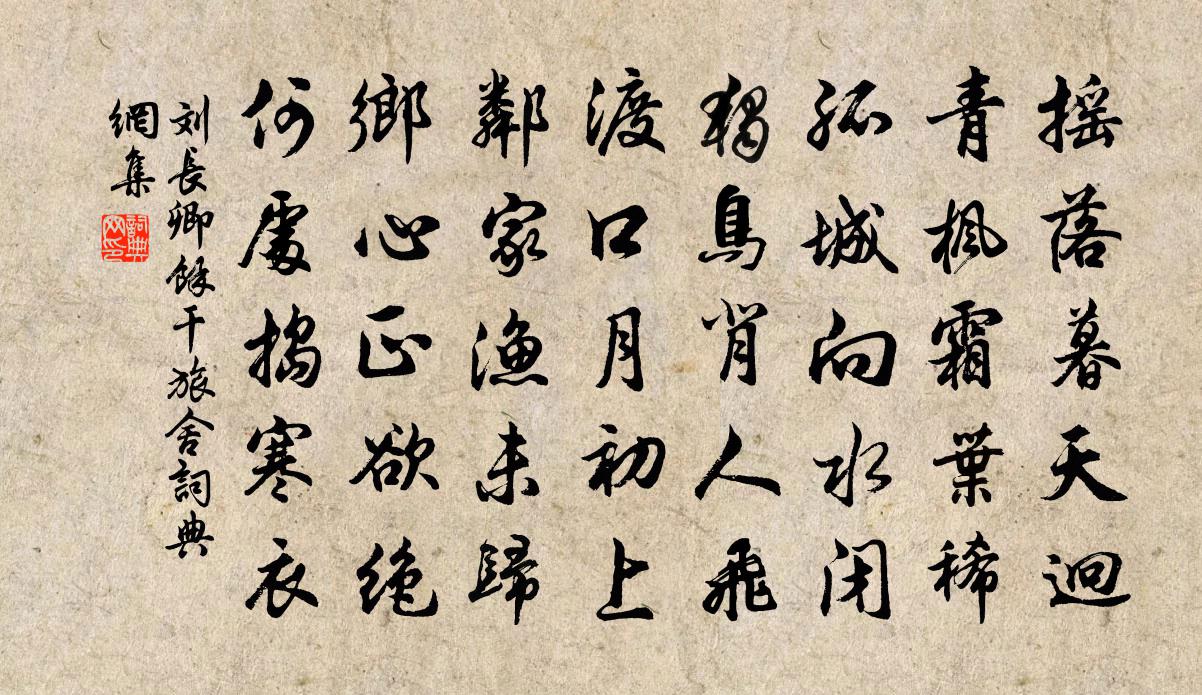 摇落暮天迥
青楓霜葉稀
孤城向水闭
獨鳥背人飛
渡口月初上
鄰家漁未歸
鄉心正欲绝
何處搗寒衣
刘長卿餘干旅舍詞典
網集
詞典
网印